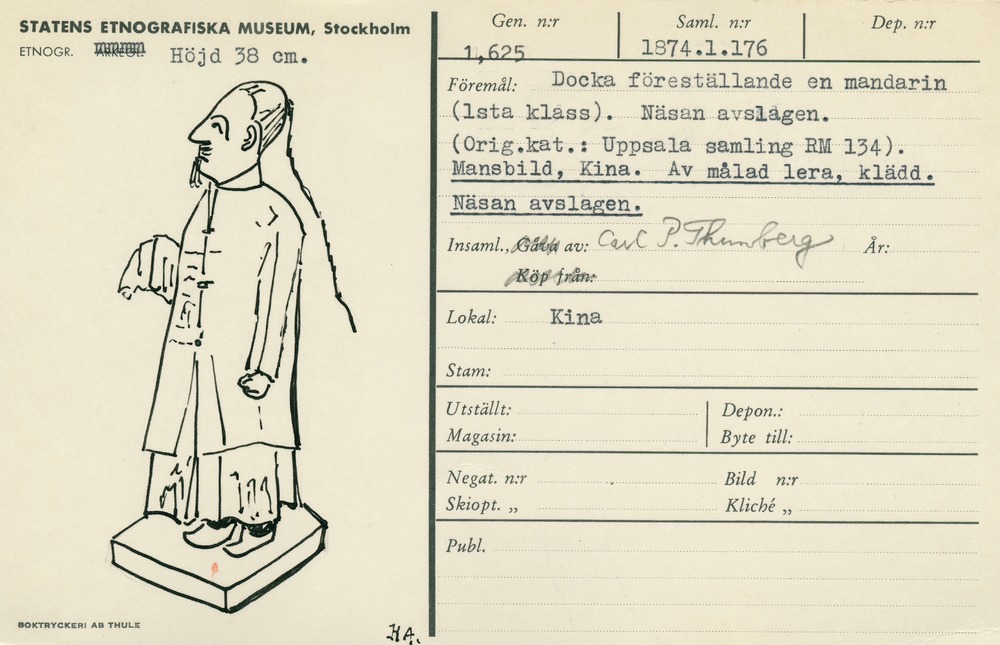 STATENS ETNOGRAFISKA MUSEUM, Stockholm
ETNOGR. ARKEOL. Höjd 38 cm.
BOKTRYCKERI AB THULE
HA.
Gen. n:r Saml. n:r Dep. n:r
1,625 1874.1.176
Föremål: Docka föreställande en mandarin
(1sta klass). Näsan avslagen.
(Orig.kat.: Uppsala samling RM 134).
Mansbild, Kina. Av målad lera, klädd.
Näsan avslagen.
Insaml., Gåva av: Carl P. Thunberg År:
Köp från:
Lokal: Kina
Stam:
Utställt: Depon.:
Magasin: Byte till:
Negat. n:r Bild n:r
Skiopt. „ Kliché „
Publ.